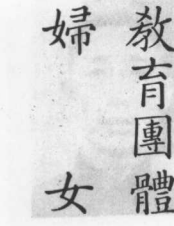 教育團體
婦女